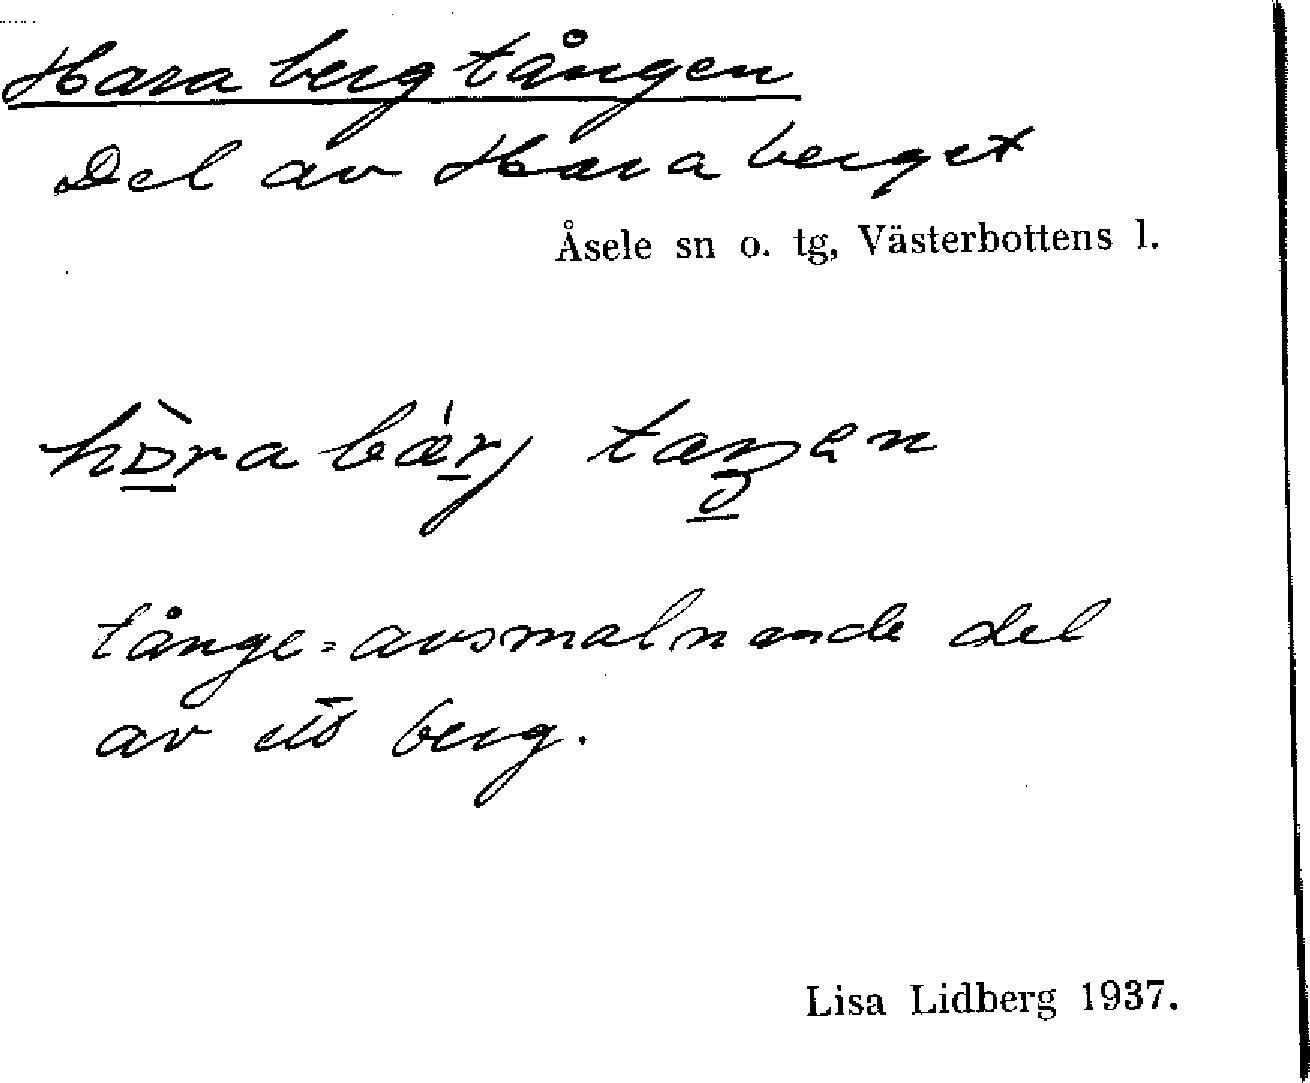 Harabergtången
Del av Haraberget
Åsele sn o. tg, Västerbottens l.
tånge = avsmalnande del
av ett berg.
Lisa Lidberg 1937.